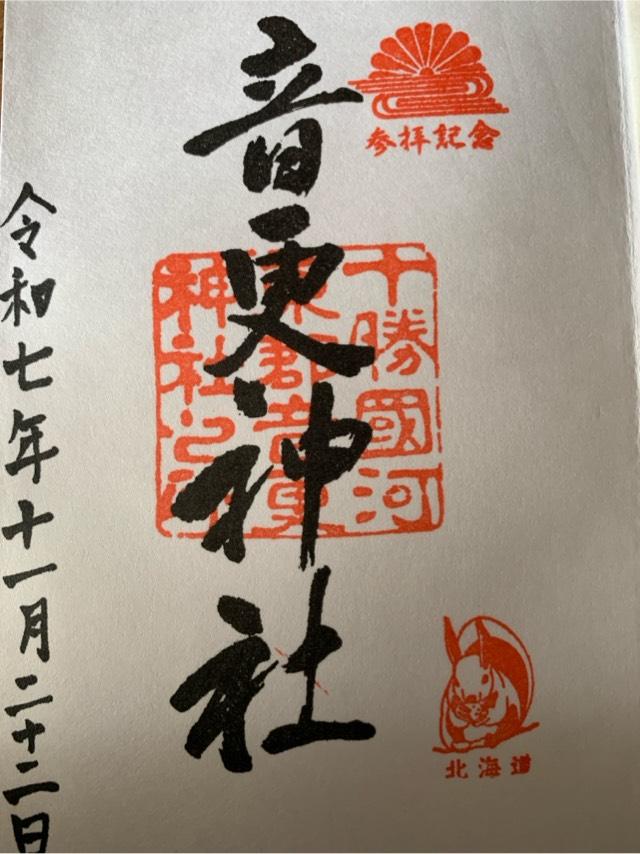 参拝記念
音更神社
十勝國河
東郡音更
神社之印
北海道
令和七年十一月二十二日